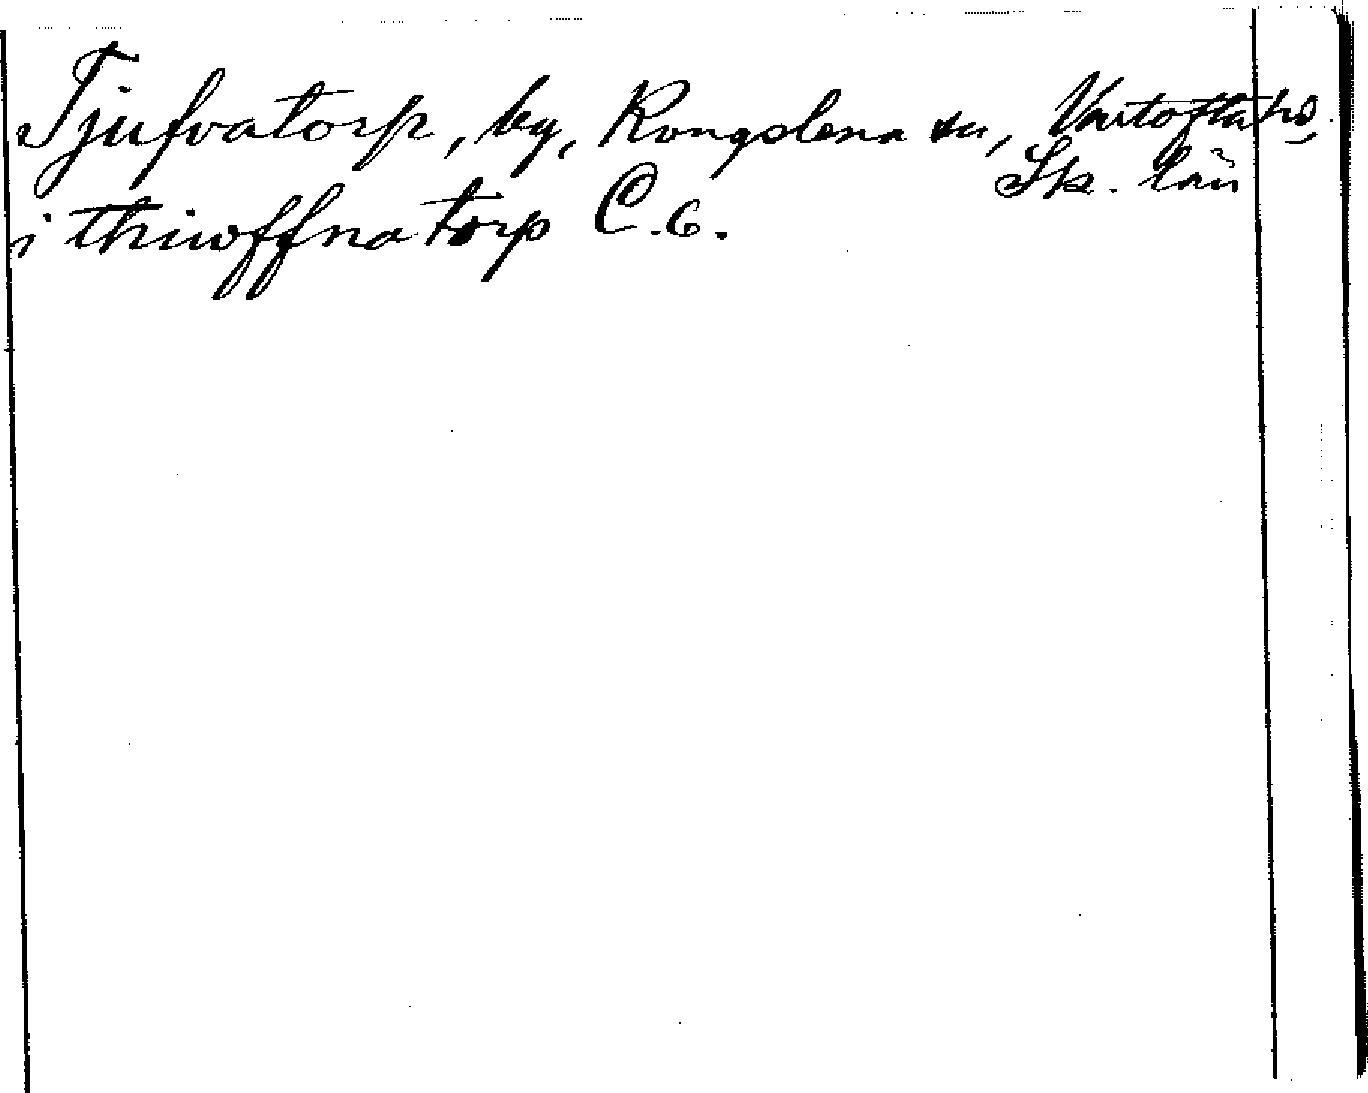 Tjufvatorp, by, Kongslena sn, Vartofta hd,
Sk. län
i thiwffna torp C. 6.